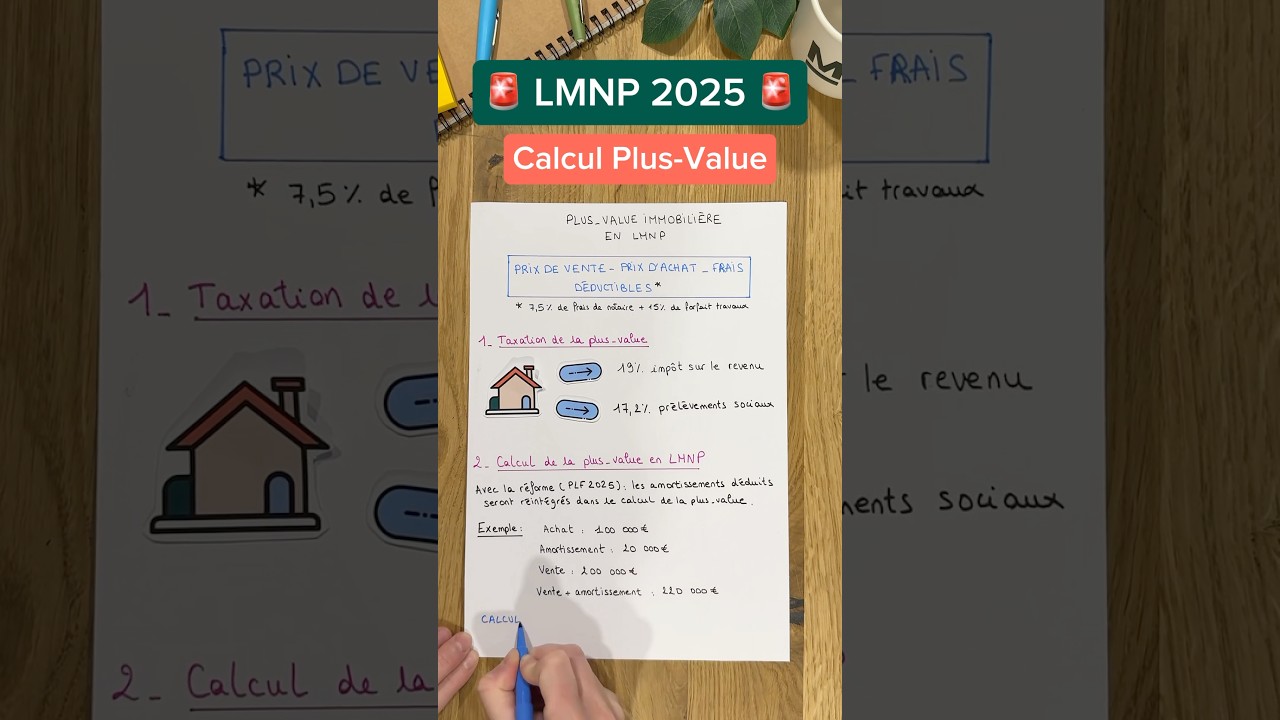 🚨 LMNP 2025 🚨
Calcul Plus-Value
PLUS_VALUE IMMOBILIÈRE
EN LMNP
PRIX DE VENTE - PRIX D'ACHAT _ FRAIS
DÉDUCTIBLES*
* 7,5% de frais de notaire + 15% de forfait travaux
1_ Taxation de la plus_value
19% impôt sur le revenu
17,2% prélèvements sociaux
2_ Calcul de la plus_value en LMNP
Avec la réforme (PLF 2025) : les amortissements déduits
seront réintégrés dans le calcul de la plus_value.
Exemple : Achat : 100 000 €
Amortissement : 20 000 €
Vente : 200 000 €
Vente + amortissement : 220 000 €
CALCUL
PRIX DE VE
FRAIS
* 7,5% de f
it travaux
1_ Taxation de l
le revenu
ments sociaux
2_ Calcul de la